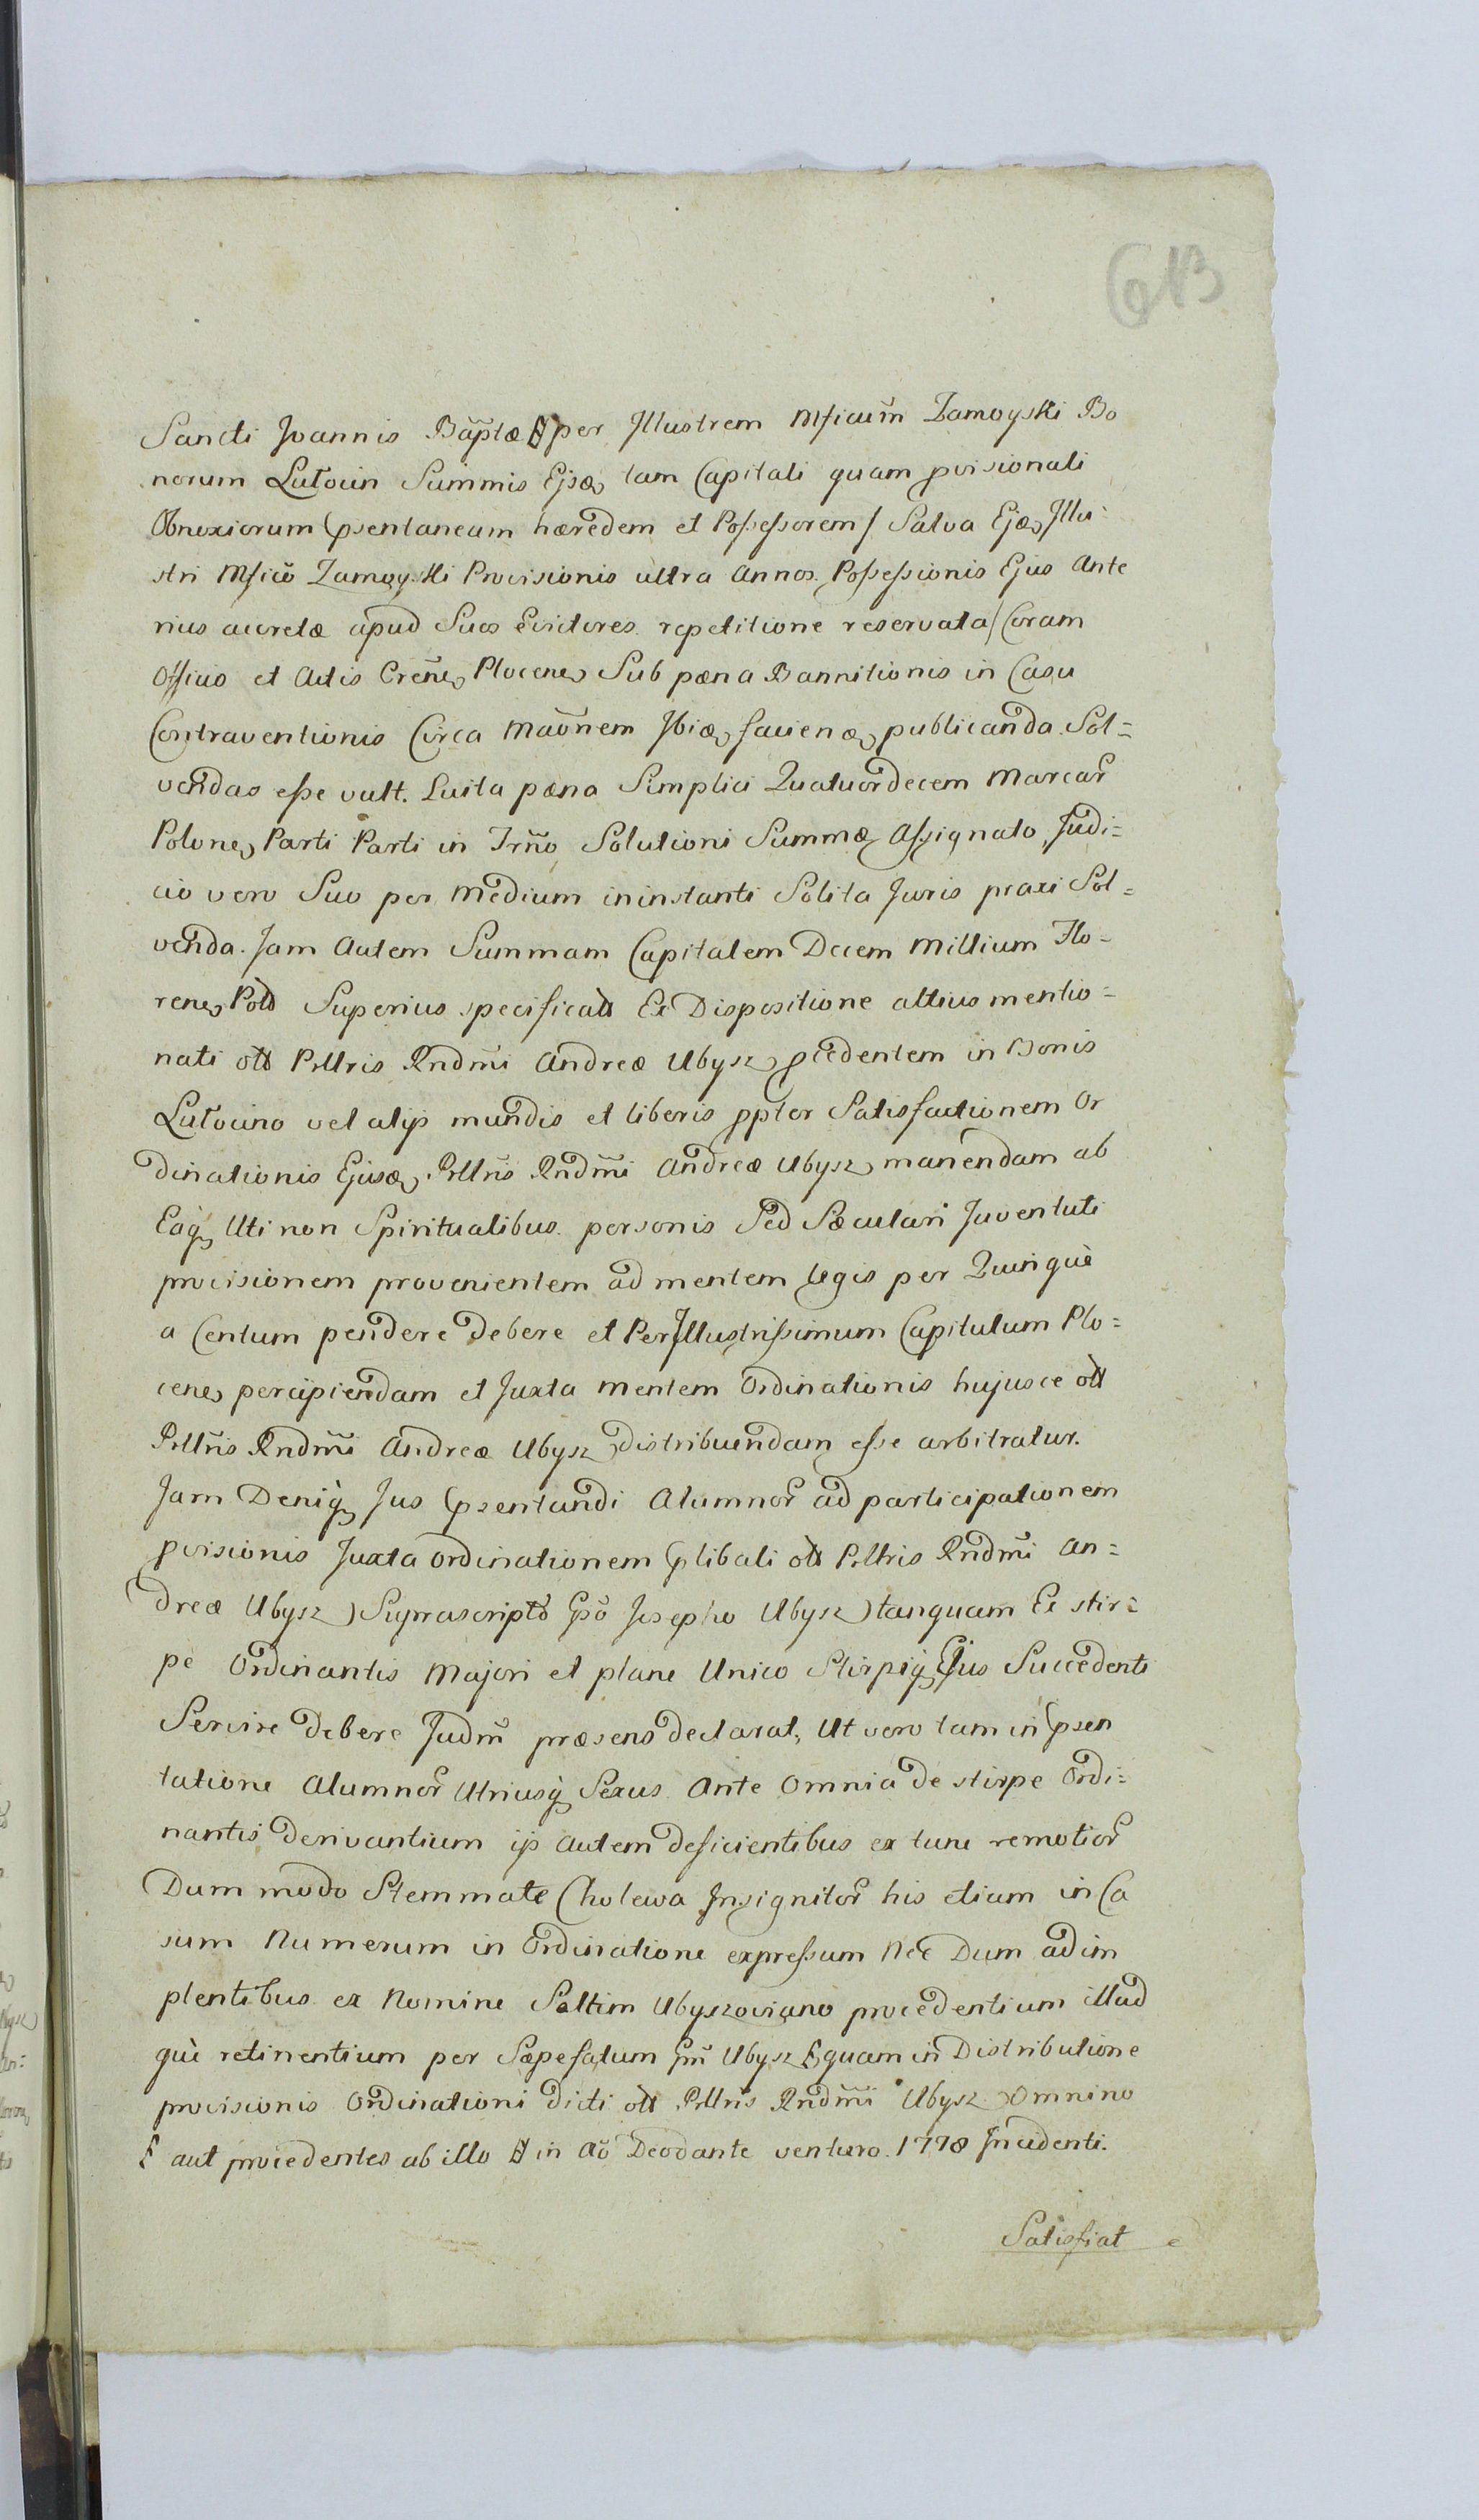 613
Sancti Joannis Bãptæ # per Illustrem Mficum̃ Zamoyski Bo
norum Lutocin Summis Ejsdẽ tam Capitali quam pvisionali
Obnoxiorum psentaneum hæredem et Possessorem / Salva Ejdẽ Illu=
stri Mficõ Zamoyski Provisionis ultra Annos Possessionis Ejus Ante
rius accretæ apud Suos evictores repetitione reservata / Coram
Officio et Actis Creñs Plocens Sub pæna Bannitionis in Casu
Contraventionis Circa Maõnem Ibidẽ faciendẽ publicanda Sol=
vendas esse vult. Luita pæna Simplici Quatuordecem Marcar
Polone Parti Parti in Trño Solutioni Summæ Assignato, Judi=
cio vero Suo per Medium ininstanti Solita Juris praxi Sol=
venda. Jam Autem Summam Capitalem Decem Millium Flo=
rene Pold Superius specificatt Ex Dispositione altius mentio=
nati ott Pllris Rndm̃i Andreæ Ubysz pcedentem in Bonis
Lutocino vel alys mundis et liberis ppter Satisfactionem Or
dinationis Ejusdẽ Pllrñs Rndm̃i Andreæ Ubysz manendam ab
Eaq Uti non Spiritualibus personis Sed Sæculari Juventuti
provisionem provenientem ad mentem legis per Quinquè
a Centum pendere debere et PerIllustrissimum Capitulum Plo=
cene percipiendam et Juxta mentem Ordinationis hujusce ott
Pllrñs Rndm̃i Andreæ Ubysz distribuendam esse arbitratur.
Jam Deniq Jus psentandi Alumnor ad participationem
pvisionis Juxta Ordinationem plibati ott Pllris Rndm̃i An=
dreæ Ubysz Suprascripto Gsõ Josepho Ubysz tanquam Ex stir=
pe Ordinantis Majori et plane Unico Stirpiq Ejus Succedenti
Servire debere Judm̃ præsens declarat, Ut vero tam in psen
tatione Alumnor Utriusq Sexus Ante Omnia de stirpe Ordi=
nantis derivantium ys autem deficientibus ex tunc remotior
Dum modo Stemmate Cholewa Insignitor his etiam in Ca
sum Numerum in Ordinatione expressum Nec Dum adim
plentibus ex Nomine Saltim Ubyszoviano procedentium illud
què retinentium per Sæpefatum Gm̃ Ubysz quam in Distributione
provisionis Ordinationi dicti ott Pllrñs Rndm̃i Ubysz Omnino
aut procedentes ab illo # in Aõ Deodante venturo 1778 Incidenti.
Satisfiat